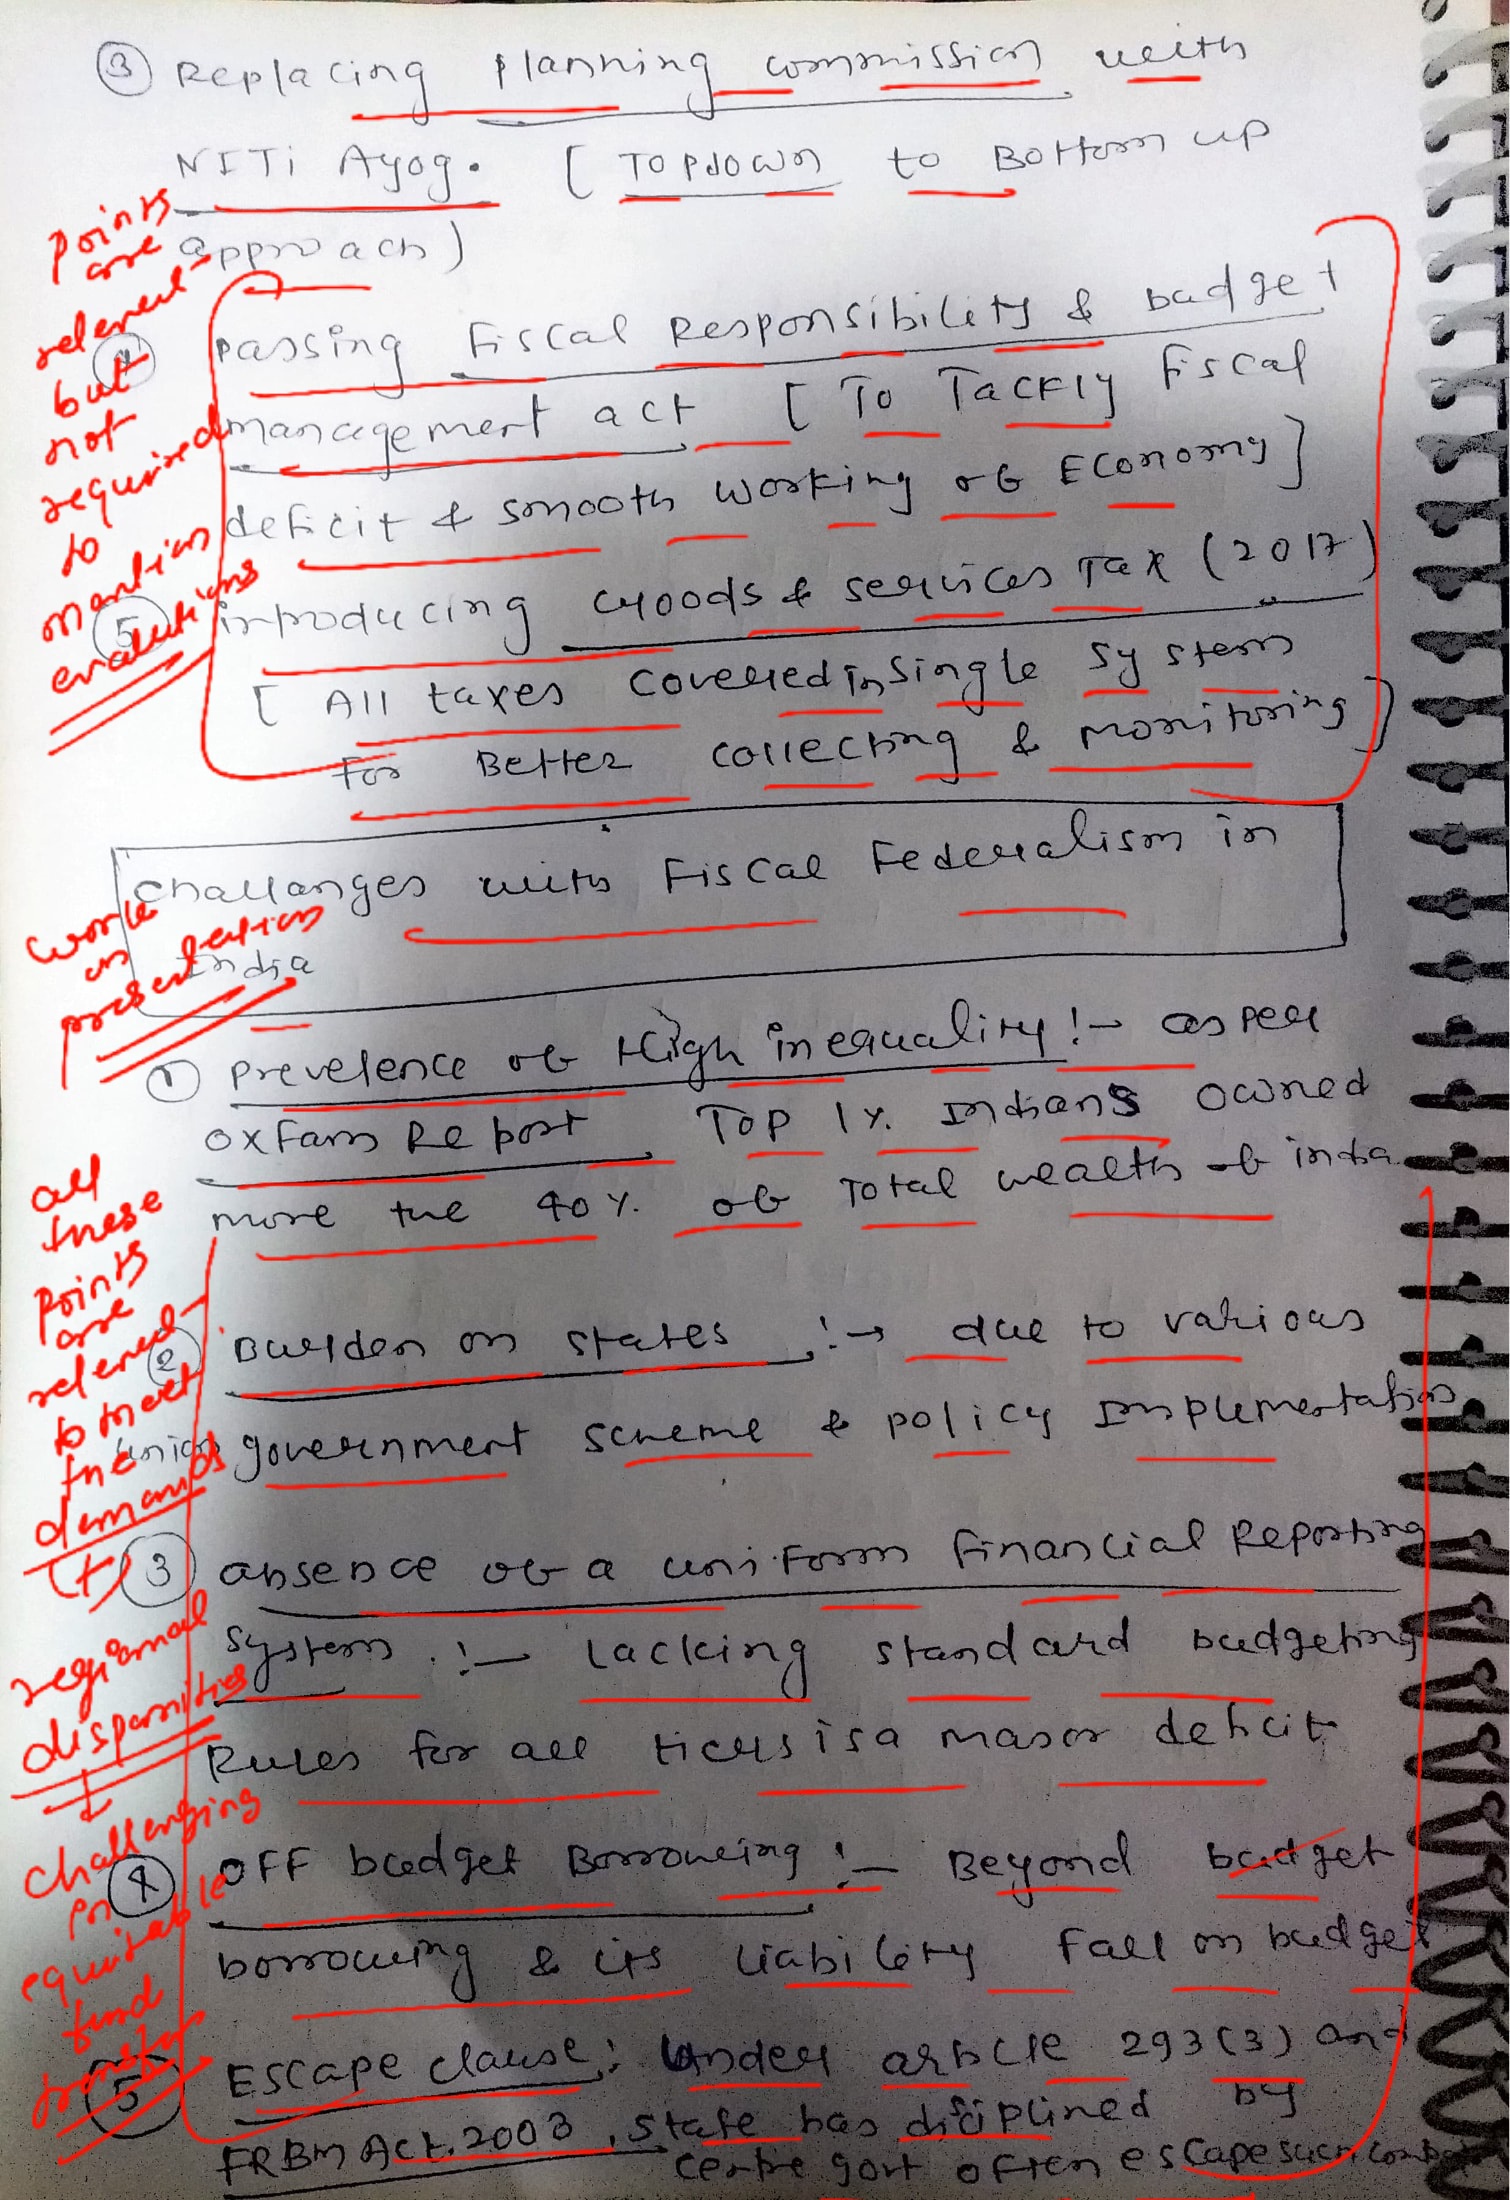 ③ Replacing planning commission with
NITi Ayog. [ Topdown to Bottom up
approach )
Points
are
relevent
but
not
required
to
mention
evalutions
④ passing Fiscal Responsibility & budget
management act [ To Tackly fiscal
deficit & smooth working of Economy ]
⑤ introducing Goods & services Tax (2017)
[ All taxes covered in single system
for Better collecting & monitoring ]
challanges with Fiscal Federalism in
India
work
on
presentation
① prevelence of High inequality :- as per
oxfam Report Top 1% Indians owned
more the 40% of Total wealth of india
all
these
Points
are
relevent
to meet
the
demands
(+)
regional
disparities
↓
challenging
in
equitable
fund
transfer
② Burden on states :→ due to various
union government scheme & policy Implementation
③ absence of a uniform financial Reporting
system :- Lacking standard budgeting
Rules for all tiers is a major deficit
④ OFF budget Borrowing :- Beyond budget
borrowing & its liability fall on budget
⑤ Escape clause: Under article 293(3) and
FRBM Act. 2003, state has disiplined by
centre govt often escape such